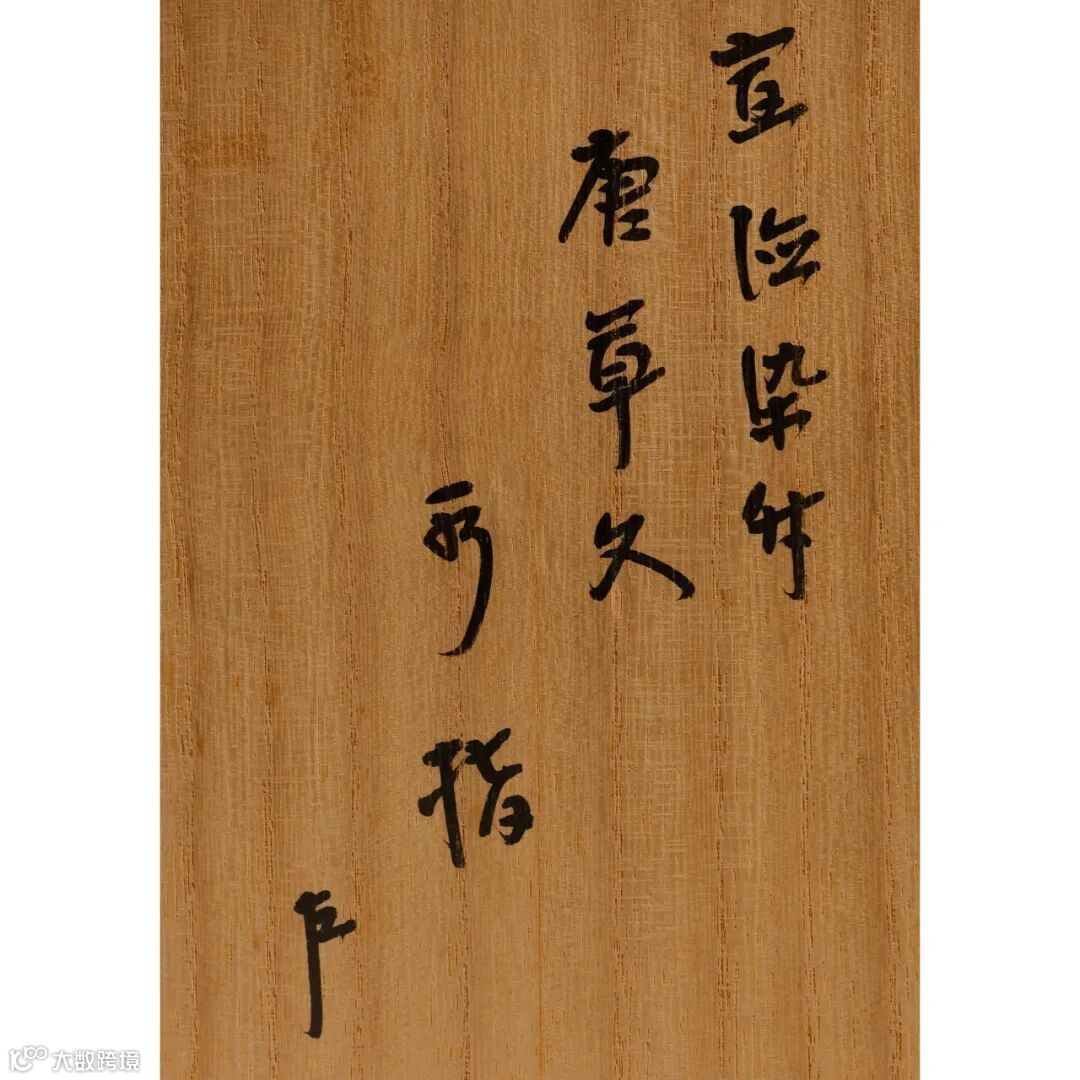 宣徳染付
唐草文
水指
大数跨境